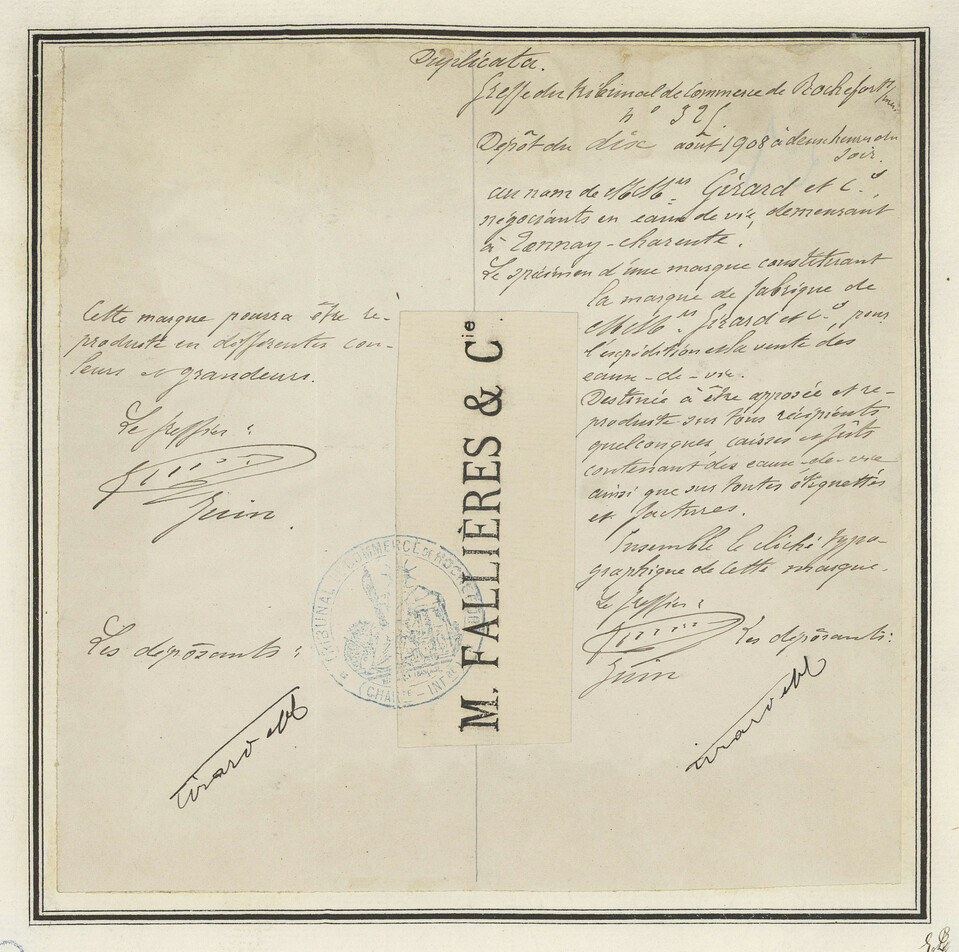 Duplicata.
Greffe du tribunal de Commerce de Rochefort s/mer
n° 325
Dépôt du dix août 1908 à deux heures du
soir.
au nom de MM.rs Girard et C.°,
négociants en eaux de vie demeurant
à Tonnay-charente.
Le spécimen d'une marque constituant
la marque de fabrique de
MM.rs Girard et C.° pour
l'expédition et la vente des
eaux-de-vie.
Destinée à être apposée et re-
produite sur tous récipients
quelconques caisses et fûts
contenant des eaux-de-vie
ainsi que sur toutes étiquettes
et factures.
Ensemble le cliché typo-
graphique de cette marque.
Le greffier :
Juin
Les déposants :
Girard et C
Cette marque pourra être re-
produite en différentes cou-
leurs et grandeurs.
Le greffier :
Juin
Les déposants :
Girard et C
M. FALLIÈRES & Cie
TRIBUNAL DE COMMERCE DE ROCHEFORT
(CHARTE - INFRE)